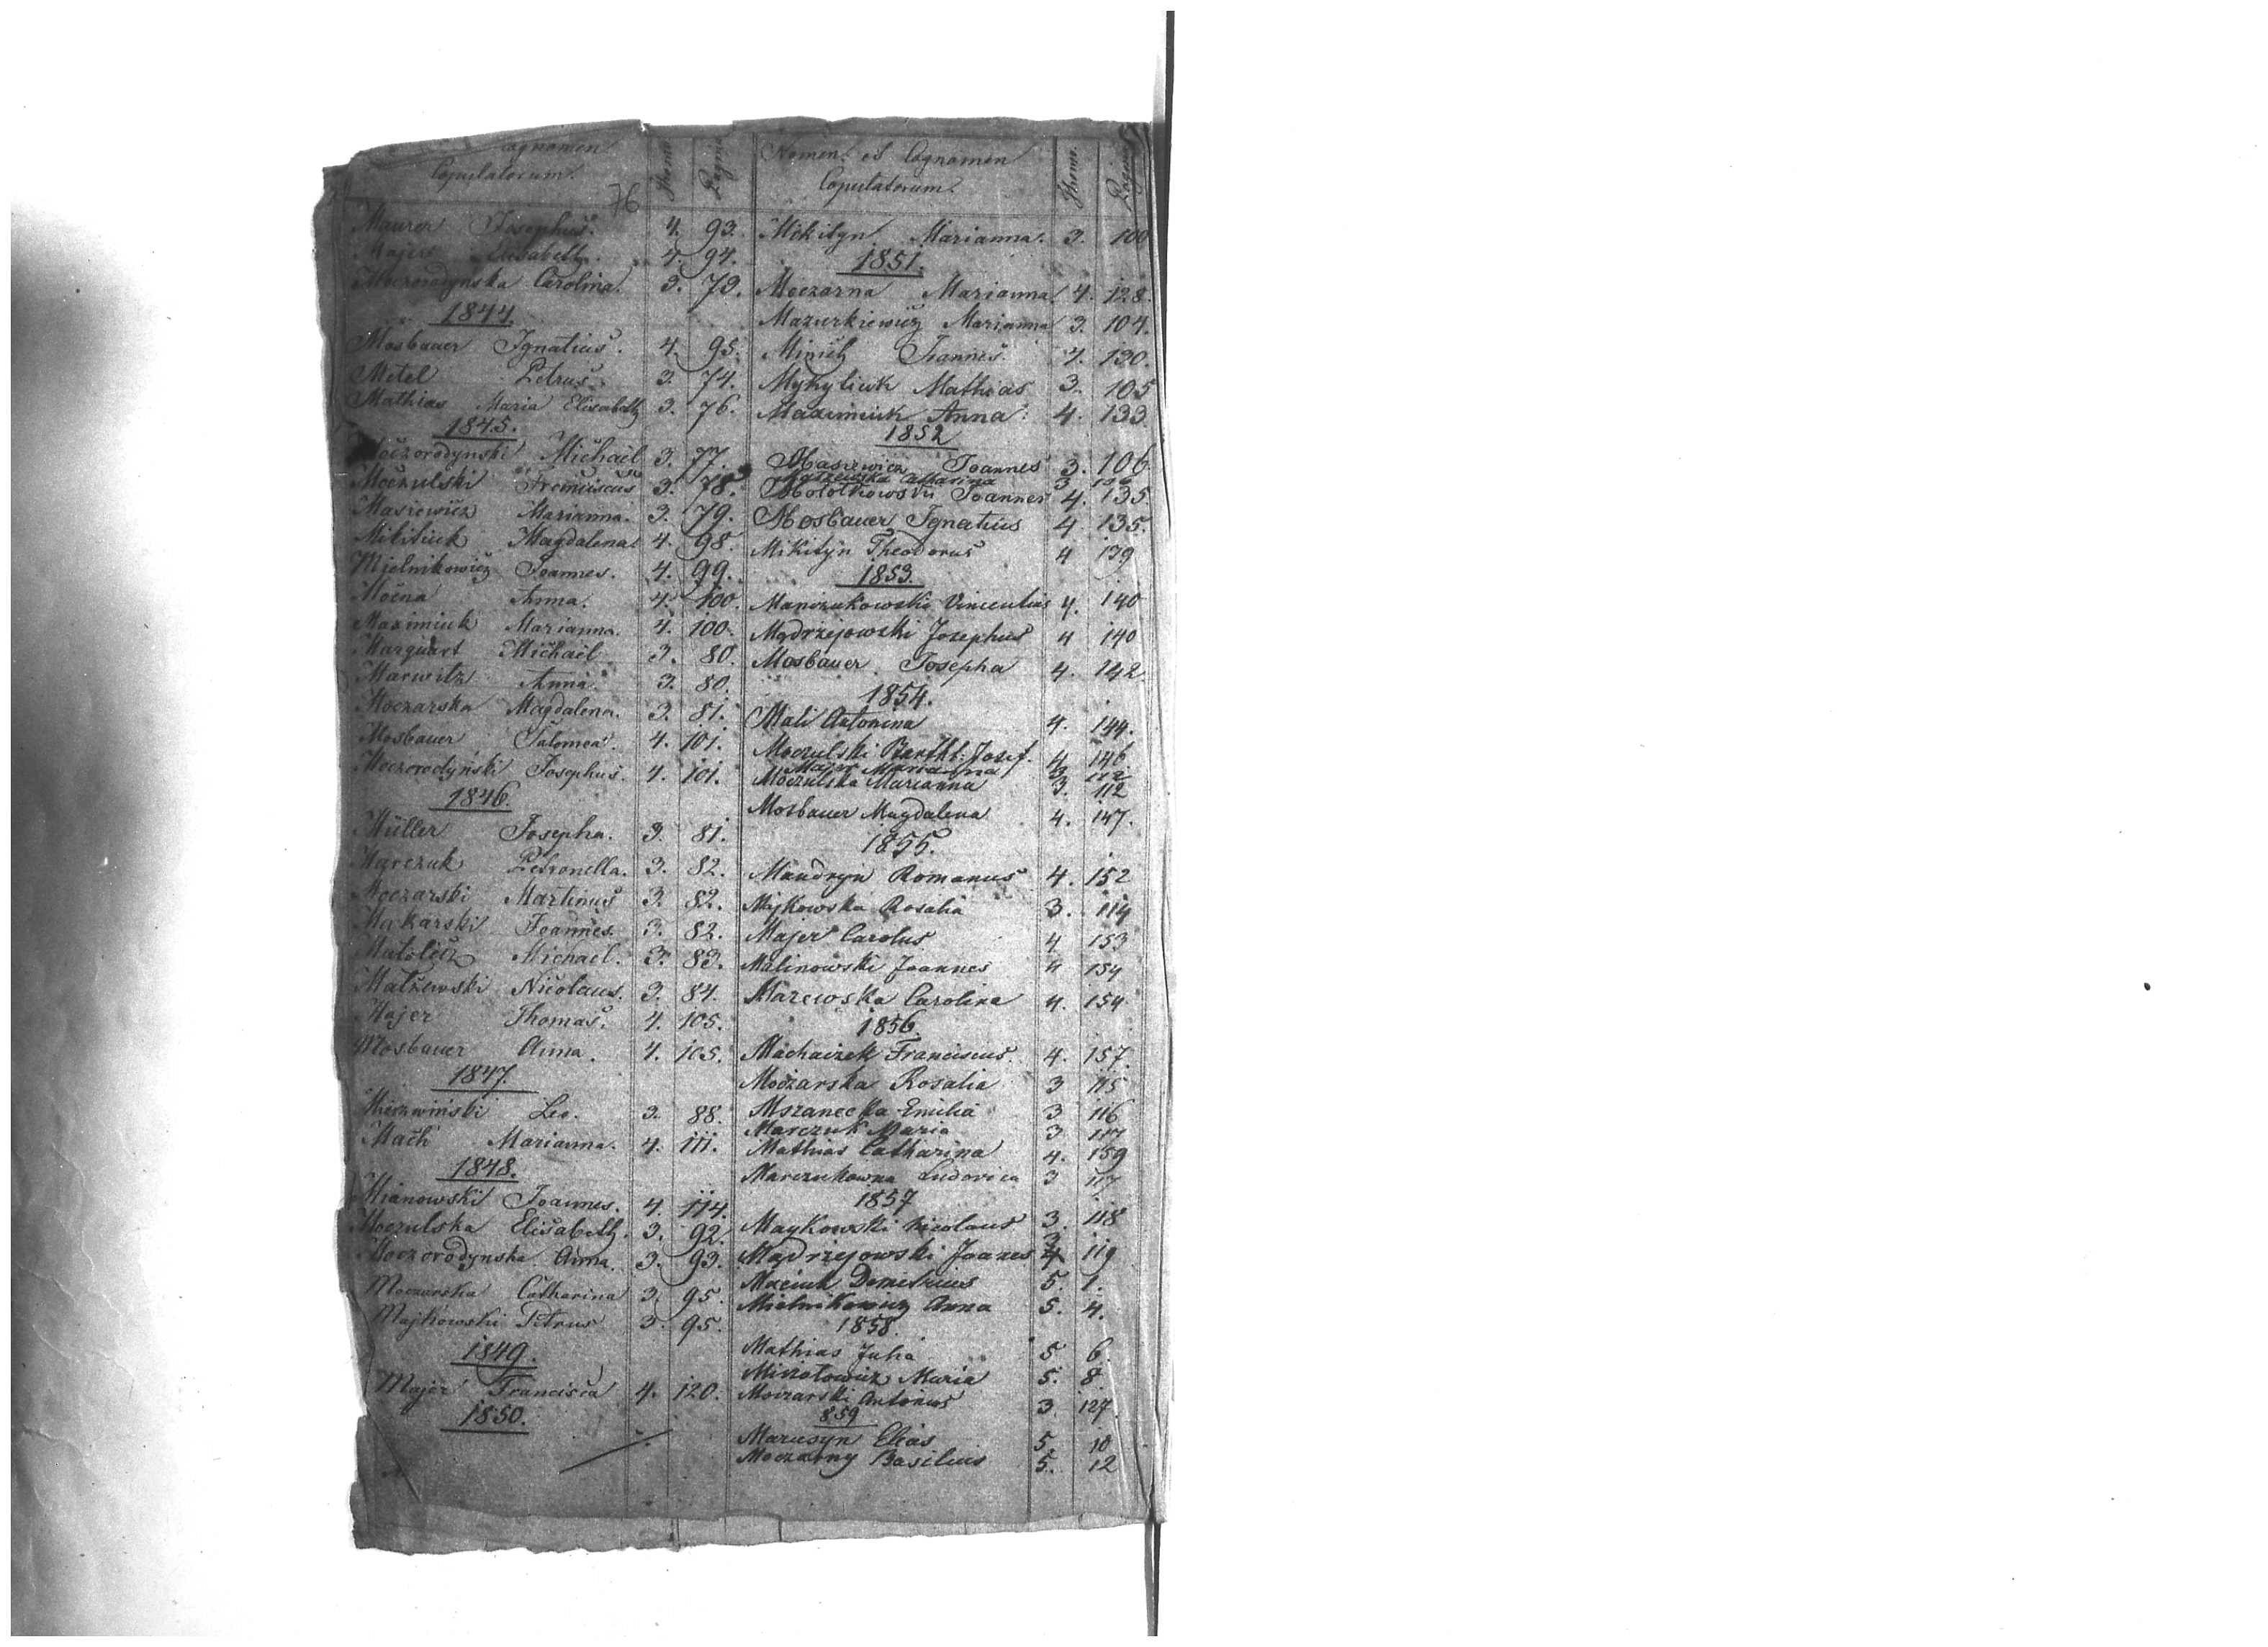 Cognomen
Copulatorum.
76
Thomus.
Pagina
Maurer Josephus. 4. 93.
Majer Elisabeth. 4. 94.
Moczorodynska Carolina. 3. 73.
1844.
Mosbauer Ignatius. 4. 95.
Metel Petrus. 3. 74.
Mathias Maria Elisabeth 3. 76.
1845.
Moczorodynski Michael 3. 77.
Moczulski Franciscus 3. 78.
Masiewicz Marianna. 3. 79.
Mikitiuk Magdalena. 4. 98.
Mjelnikowicz Joannes. 4. 99.
Mocna Anna. 4. 100.
Maximiuk Marianna. 4. 100.
Marquart Michael 3. 80.
Marwitz Anna. 3. 80.
Moczarska Magdalena. 3. 81.
Mosbauer Salomea. 4. 101.
Moczorodyński Josephus. 4. 101.
1846.
Müller Josepha. 3. 81.
Marczuk Petronella. 3. 82.
Moczarski Martinus 3. 82.
Makarski Joannes. 3. 82.
Michael. 3. 83.
Malżewski Nicolaus. 3. 84.
Majer Thomas. 4. 105.
Mosbauer Anna. 4. 105.
1847.
Mierzwiński Leo. 3. 88.
Mach Marianna. 4. 111.
1848.
Mianowski Joannes. 4. 114.
Moczulska Elisabeth. 3. 92.
Moczorodynska Anna. 3. 93.
Moczarska Catharina 3. 95.
Majkowski Petrus 3. 95.
1849.
Majer Francisca 4. 120.
1850.
Nomen et Cognomen
Copulatorum.
Thomus.
Pagina
Mikityn Marianna. 3. 100
1851.
Moczarna Marianna. 4. 128.
Mazurkiewicz Marianna 3. 104.
Minich Joannes. 4. 130.
Mykytiuk Mathias 3. 105
Maximiuk Anna. 4. 133
1852
Masiewicz Joannes 3. 106
Catharina 3 106
Mołotkowski Joannes 4. 135
Mosbauer Ignatius 4. 135.
Mikityn Theodorus 4 139
1853.
Manczukowski Vincentius 4. 140
Mądrzejowski Josephus 4 140
Mosbauer Josepha 4. 142.
1854.
Mali Antonina 4. 144.
Moczulski Barthl. Josef. 4 146
Majer Marianna 3 112
Moczulska Marianna 3. 112
Mosbauer Magdalena 4. 147.
1855.
Maudryn Romanus 4. 152
Majkowska Rosalia 3. 114
Majer Carolus 4 153
Malinowski Joannes 4 154
Mazewska Carolina 4. 154
1856.
Machaczek Franciscus. 4. 157.
Moczarska Rosalia 3 115
Mszanecka Emilia 3 116
Marczuk Maria 3 117
Mathias Catharina 4. 159
Marczukowna Ludovica 3 117
1857
Maykowski Nicolaus 3. 118
Mądrzejowski Joanes 3 119
Maciuk Demetrius 5. 1.
Mielnikowicz Anna 5. 4.
1858.
Mathias Julia 5 6.
Maria 5. 8
Moczarski Antonius 3. 127.
859
Marusyn Elias 5. 10
Moczarny Basilius 5. 12